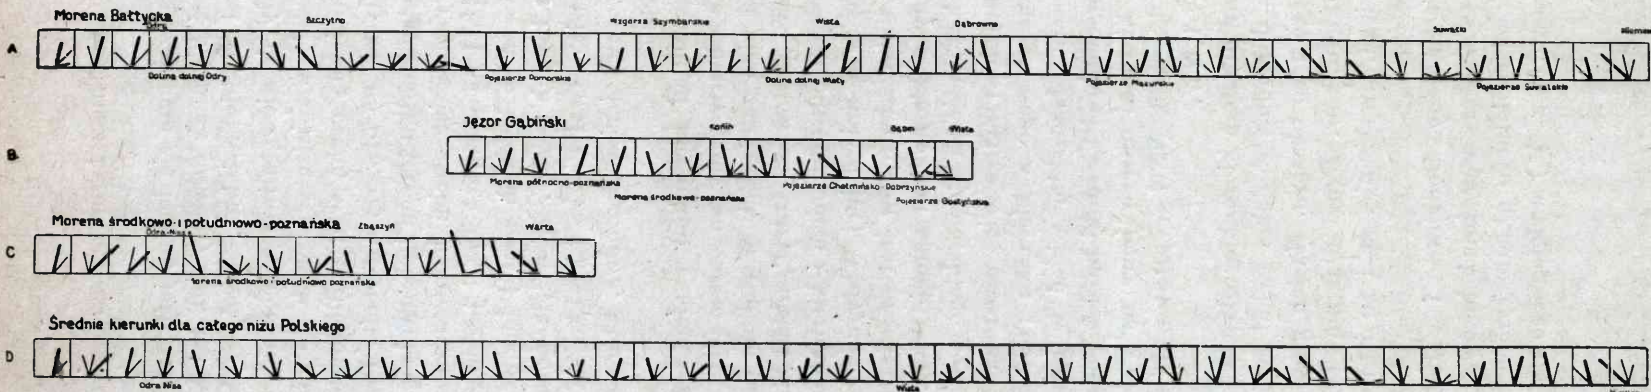 Morena Bałtycka
Odra Szczytno Wzgórza Szymbarskie Wisła Dąbrowno Suwałki Niemen
A
Dolina dolnej Odry Pojezierze Pomorskie Dolina dolnej Wisły Pojezierze Mazurskie Pojezierze Suwalskie
Jęzor Gąbiński
Konin Gąbin Wisła
B
Morena północno-poznańska Pojezierze Chełmińsko-Dobrzyńskie
Morena środkowo-poznańska Pojezierze Gostyńskie
Morena środkowo-i południowo-poznańska Zbąszyń Warta
Odra-Nisa
C
Morena środkowo-południowo poznańska
Średnie kierunki dla całego niżu Polskiego
D
Odra Nisa Wisła